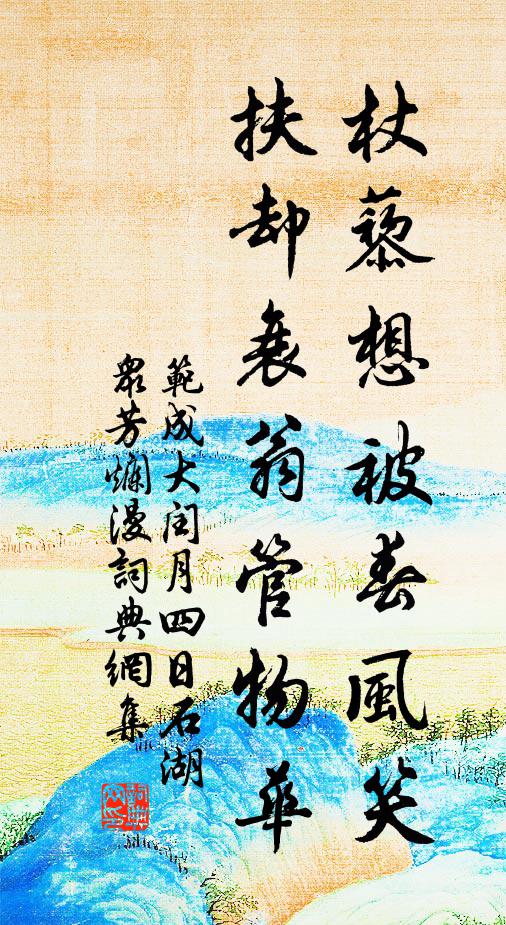 杖藜想被春風笑
扶却衰翁管物華
範成大閏月四日石湖
眾芳爛漫詞典網集